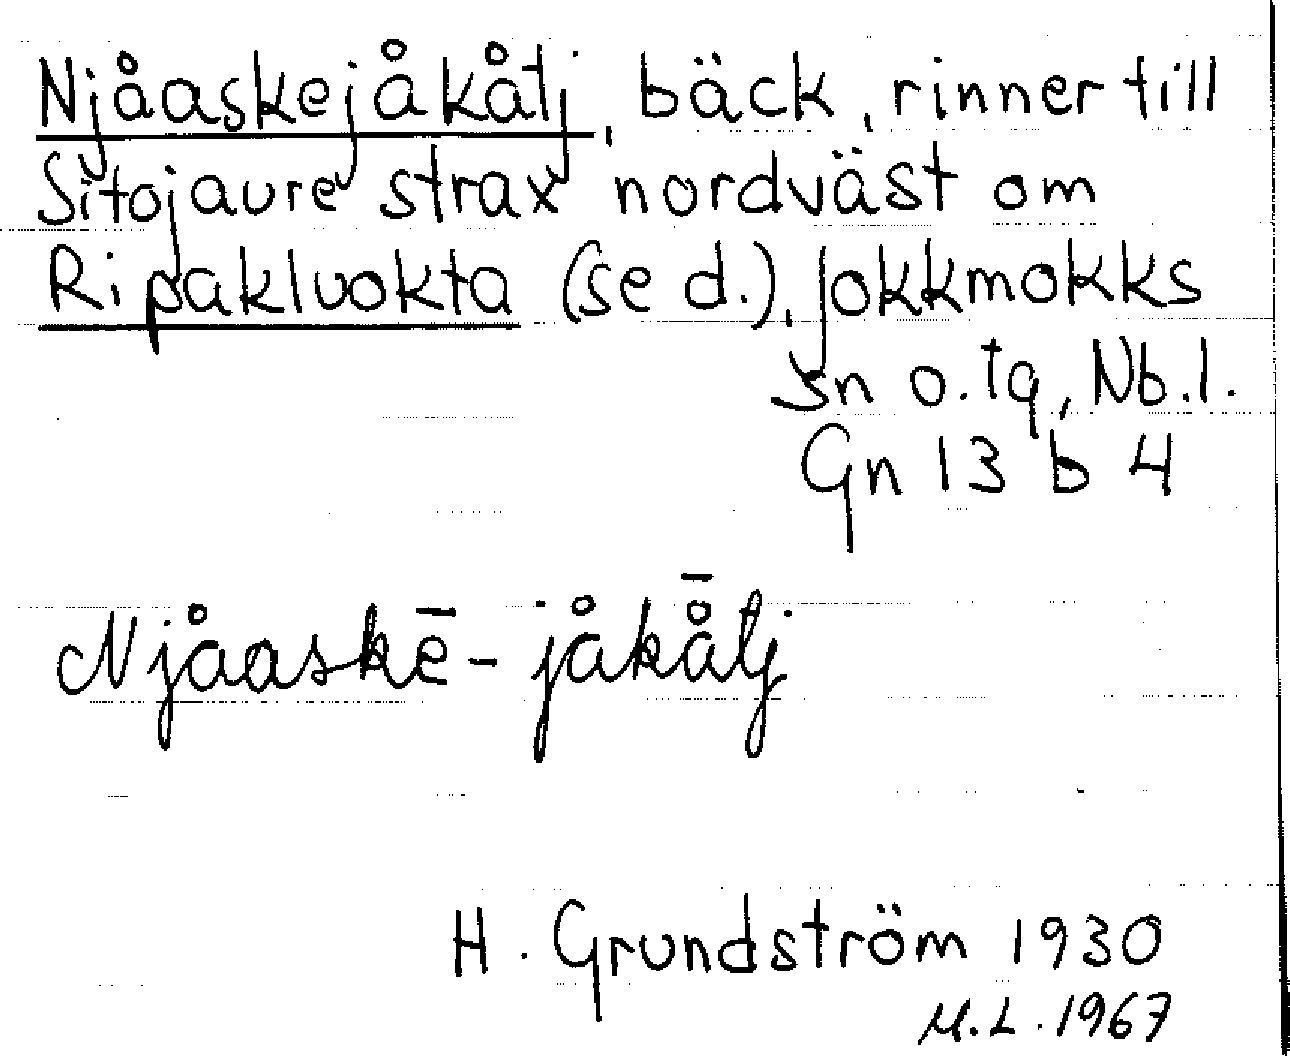 Njåaskejåkåtj, bäck, rinner till
Sitojaure strax nordväst om
Ripakluokta (se d.), Jokkmokks
sn o. tg, Nb. l.
Gn 13 b 4
Njåaskē-jåkå̄tj
H. Grundström 1930
M.L. 1967